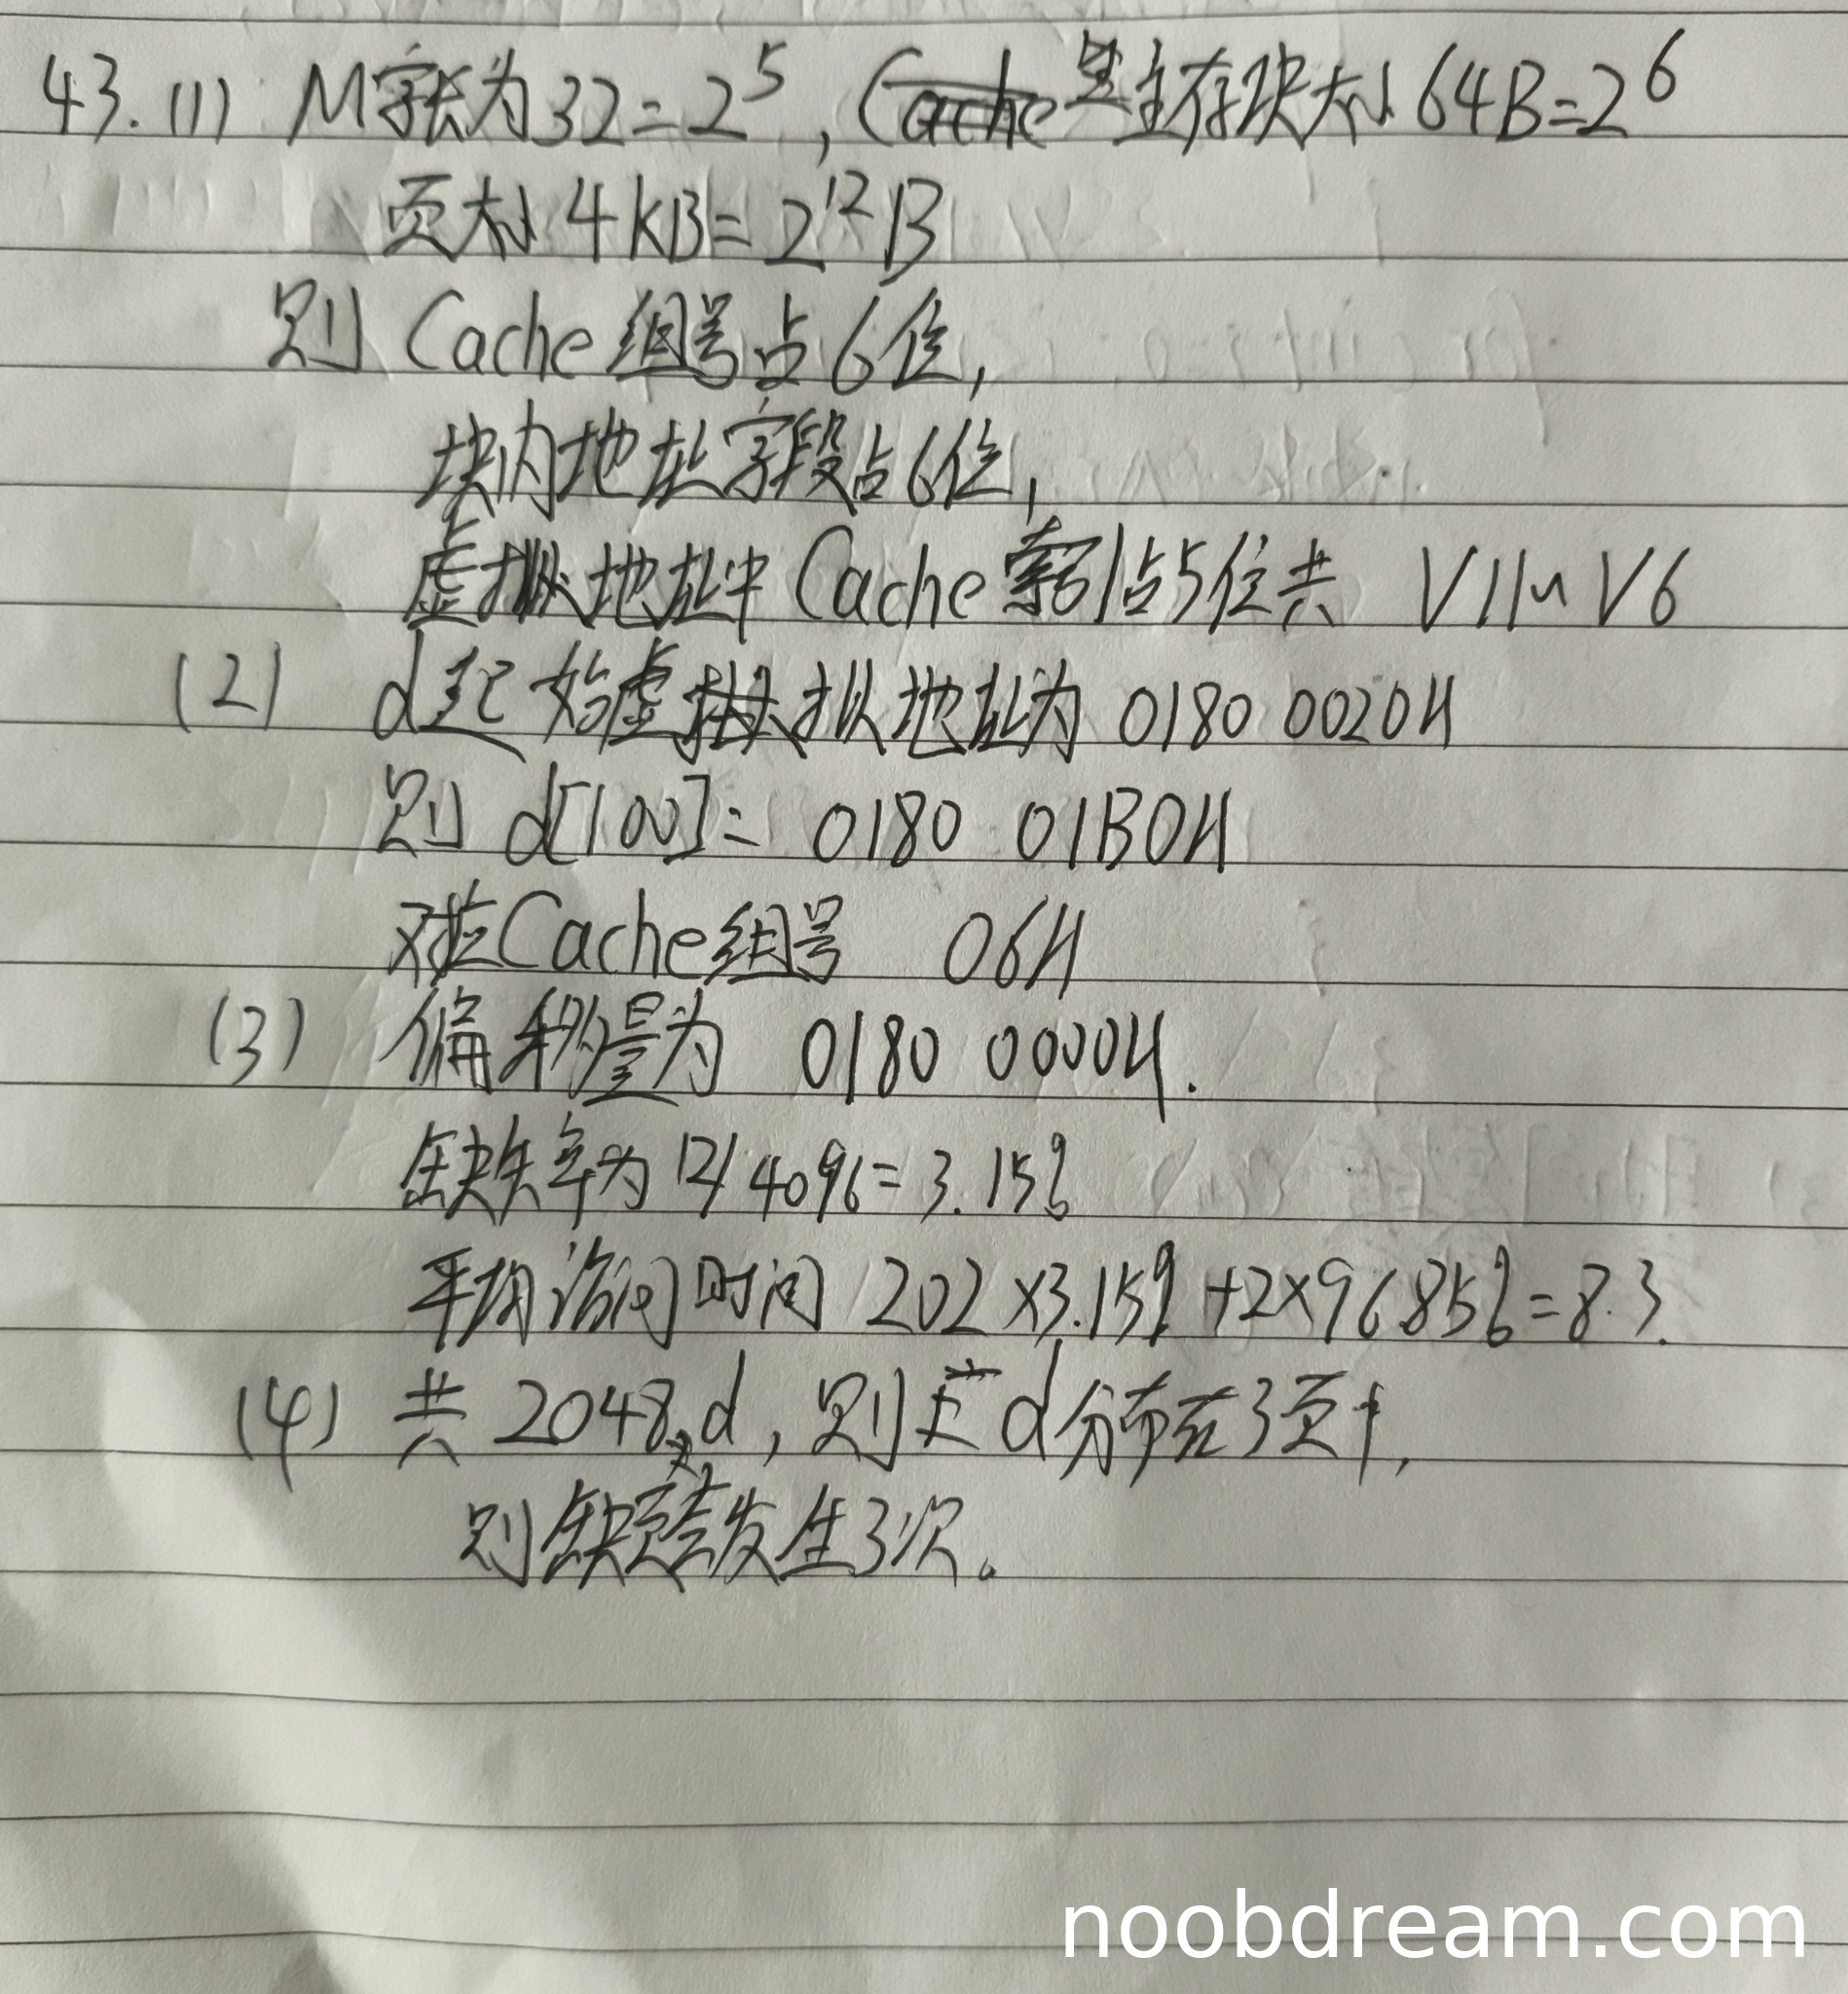 43. (1) M字长为32=2^5, 主存块大小64B=2^6
页大小4KB=2^12B
则 Cache组号占6位,
块内地址字段占6位,
虚拟地址中Cache索引占5位共 V11~V6
(2) d起始虚拟地址为 0180 0020H
则 d[100]= 0180 01B0H
对应Cache组号 06H
(3) 偏移量为 0180 0000H.
缺失率为 4096=3.15%
平均访问时间 202×3.15%+2×96.85%=8.3.
(4) 共2048次d, 则 d分布在3页中,
则缺页发生3次。
noobdream.com